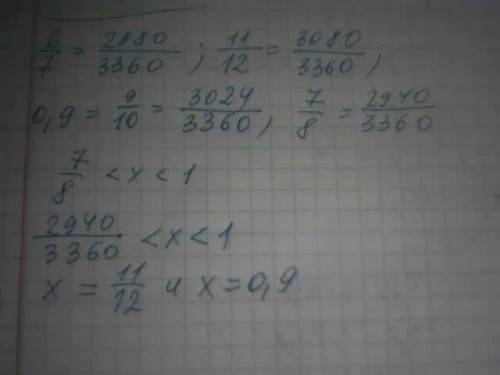 6/7 = 2880/3360 ; 11/12 = 3080/3360 ;
0,9 = 9/10 = 3024/3360 ; 7/8 = 2940/3360
7/8 < x < 1
2940/3360 < x < 1
x = 11/12 и x = 0,9